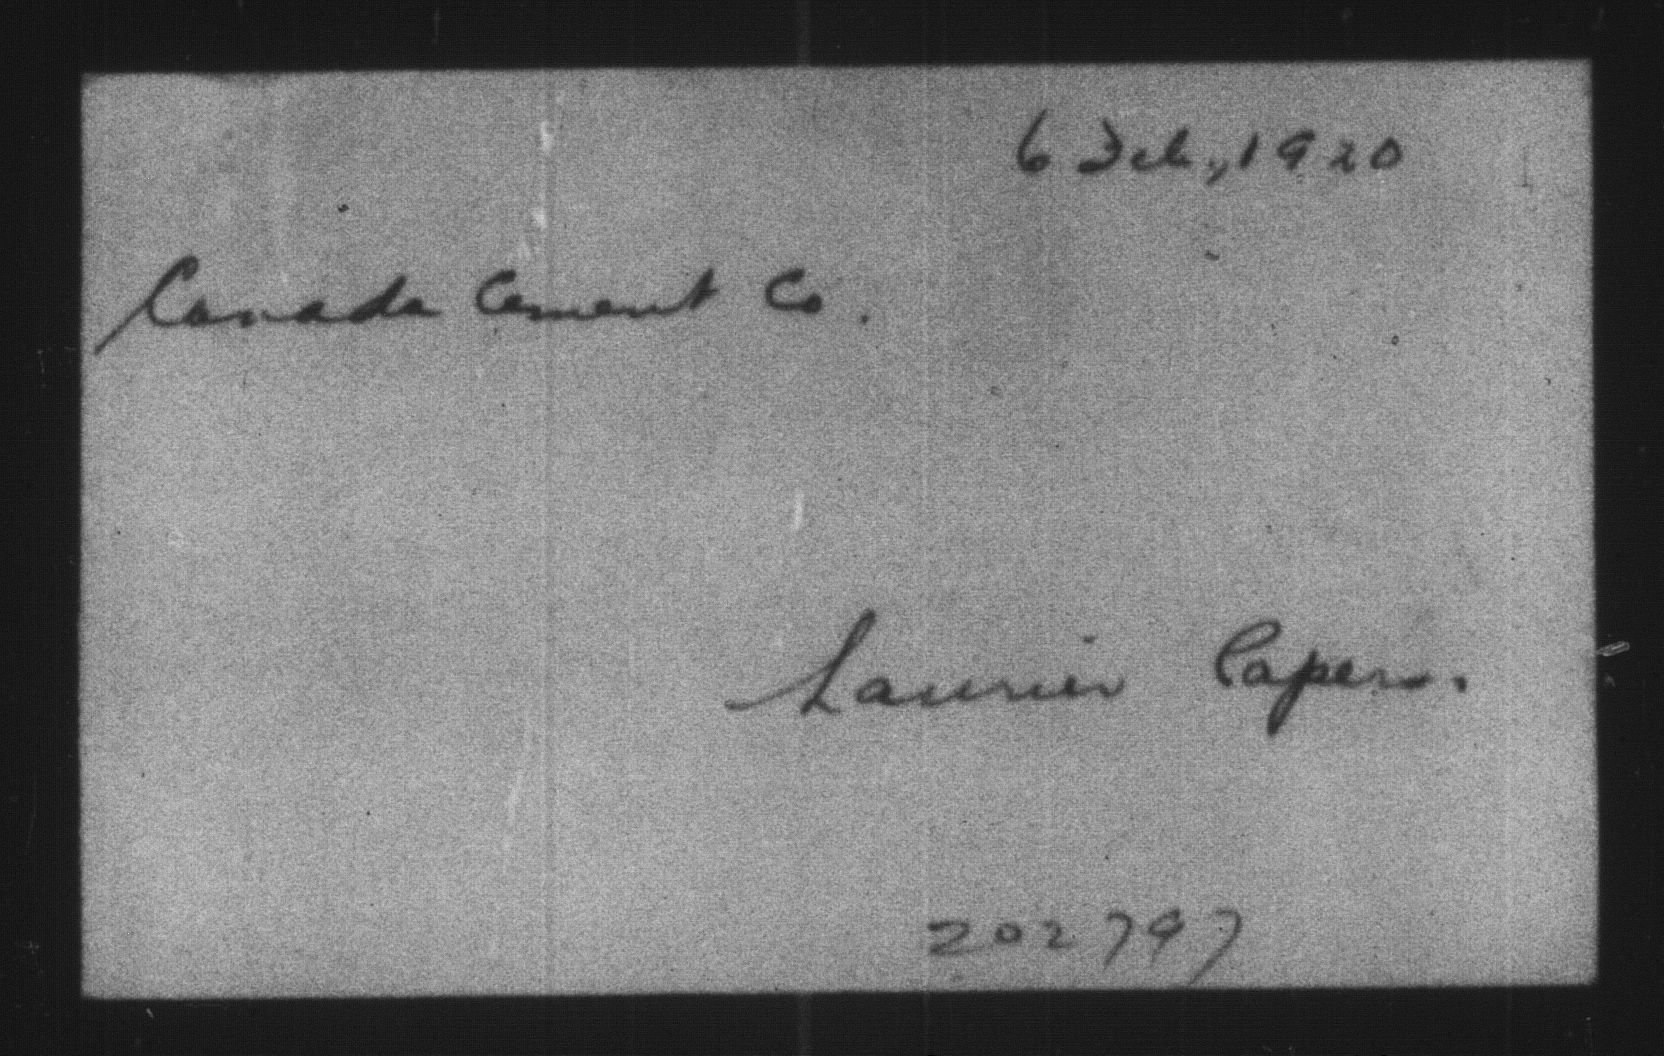 6 Feb., 1920
Canada Cement Co.
Laurier Papers.
202797